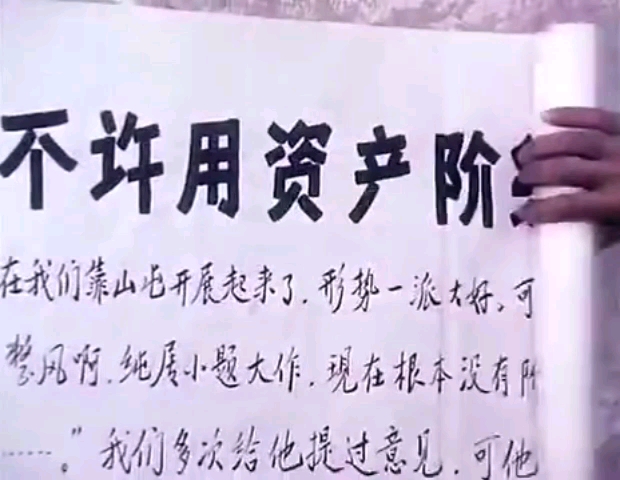 不许用资产阶
在我们靠山屯开展起来了，形势一派大好。可
整风啊，纯属小题大作，现在根本没有阶
……。”我们多次给他提过意见，可他